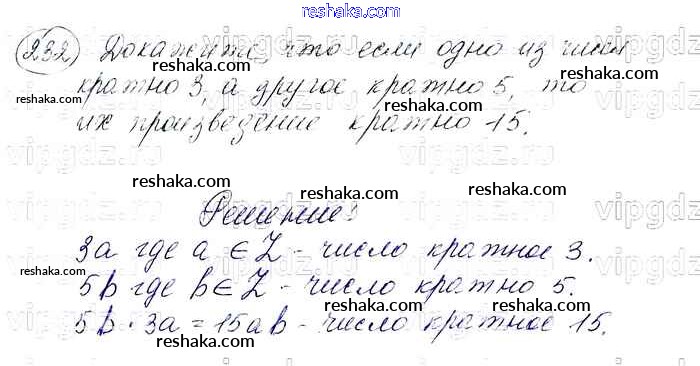 reshaka.com
232) Докажите, что если одно из чисел
кратно 3, а другое кратно 5, то
их произведение кратно 15.
Решение:
3a где a ∈ Z - число кратное 3.
5b где b ∈ Z - число кратное 5.
5b · 3a = 15ab - число кратное 15.
reshaka.com
reshaka.com
reshaka.com
reshaka.com
reshaka.com
reshaka.com
reshaka.com
reshaka.com
reshaka.com
reshaka.com
reshaka.com
reshaka.com
reshaka.com
vipgdz
vipgdz.ru
vipgdz